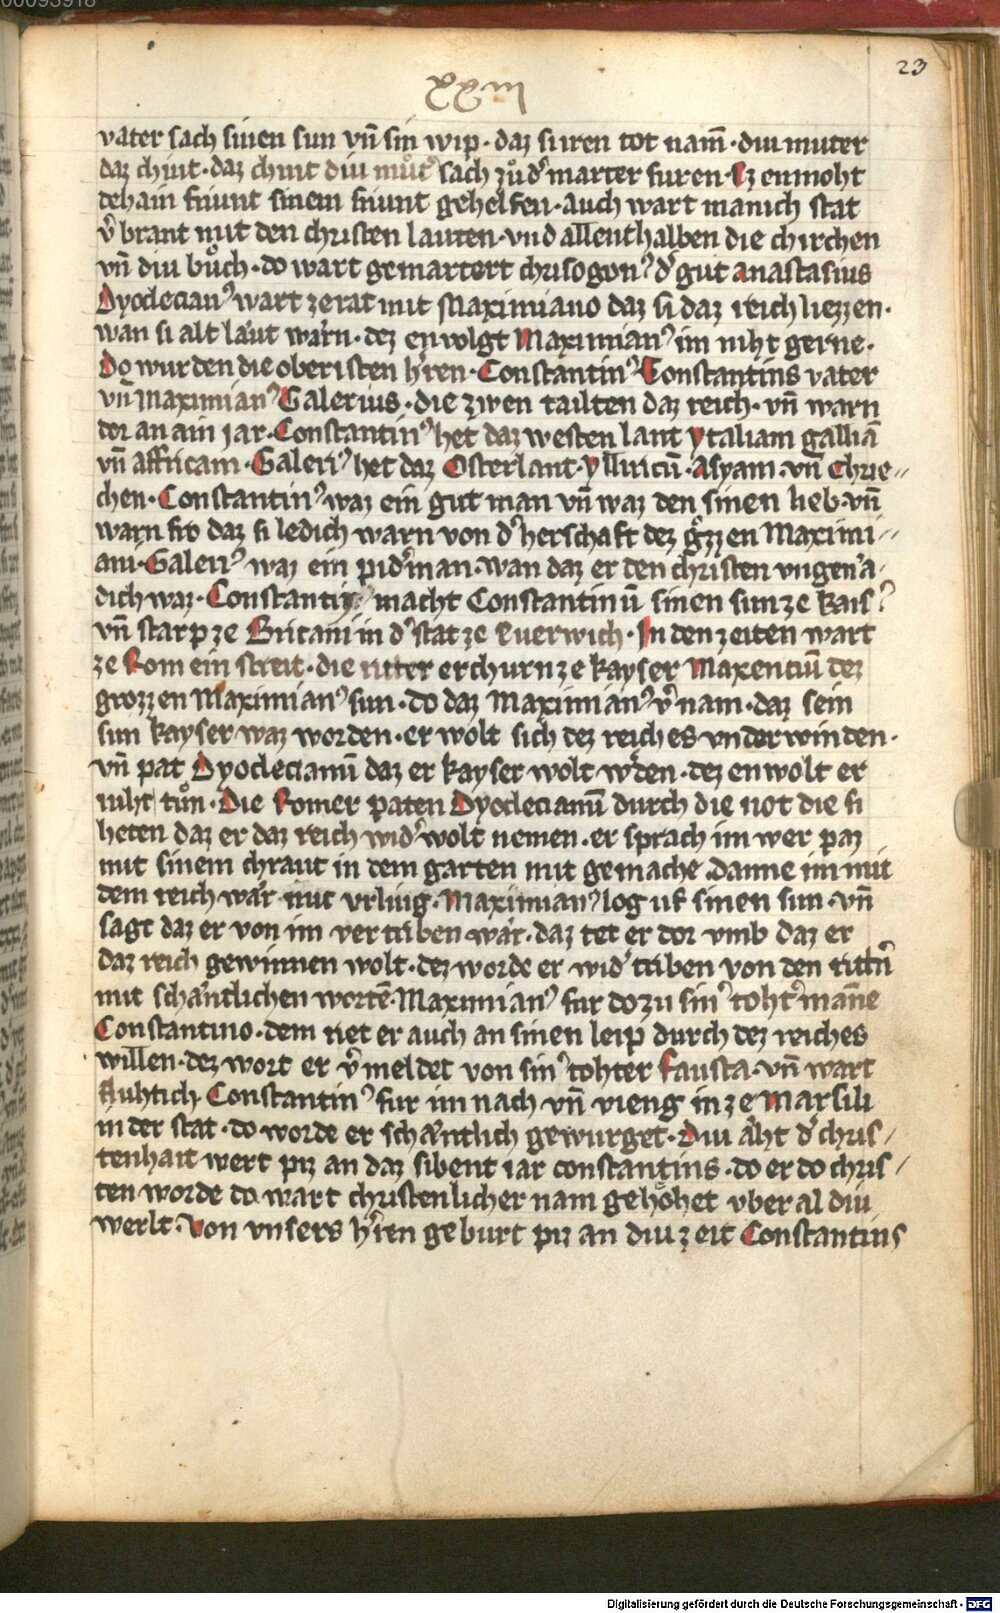 00093918
23
XXIII
vater sach sinen sun vn̄ sin wip · daz si iren tot nam̄ · diu muter
daz chint · daz chint diu můt͛ sach zů d͛ marter furen · Ez enmoht
dehain friunt sinem friunt gehelfen · auch wart manich stat
v͛brant mit den christen lauten · vnd allenthalben die chirchen
vn̄ diu bůch · do wart gemartert chrisogon⁹ d͛ gut anastasius
Dyoclecian⁹ wart zerat mit Maximiano daz si daz reich liezzen ·
wan si alt laͤut warn · dez enuolgt Maximian⁹ im niht gerne ·
Do wurden die obersten h͛ren · Constantin⁹ Constantins vater
vn̄ Maximian⁹ Galerius · die zwen tailten daz reich · vn̄ warn
dor an ain jar · Constantin⁹ het daz westen lant ytaliam galliā
vn̄ affricam · Galeri⁹ het daz Osterlant · ylliricū · Asyam · vn̄ Chrie〃
chen · Constantin⁹ waz ein gut man vn̄ waz den sinen lieb · vn̄
warn fro daz si ledich warn von d͛ herschaft dez gͦzzen Maximi〃
ani · Galeri⁹ waz ein pid͛man · wan daz er den christen vngenaͤ/
dich waz · Constantin⁹ macht Constantinū sinen sun ze kais͛
vn̄ starp ze Britani in d͛ stat ze Euerwich · In den zeiten wart
ze Rom ein streit · die ritter erchurn ze kayser Maxenciū dez
grozzen Maximian⁹ sun · do daz Maximian⁹ v͛nam · daz sein
sun kayser waz worden · er wolt sich dez reiches vnderwinden ·
vn̄ pat Dyoclecianū daz er kayser wolt w͛den · dez enwolt er
niht tůn · Die Romer paten Dyoclecianū durch die not die si
heten daz er daz reich wid͛ wolt nemen · er sprach im wer paz
mit sinem chraut in dem garten mit gemache · danne im mit
dem reich waͤr mit vrliug · Maximian⁹ log uf sinen sun · vn̄
sagt daz er von im vertriben waͤr · daz tet er dor vmb daz er
daz reich gewinnen wolt · dez worde er wid͛triben von den rittn̄
mit schaͤntlichen wortē · Maximian⁹ fur do zu sin͛ toht͛ māne
Constantino · dem riet er auch an sinen leip durch dez reiches
willen · dez wort er v͛meldet von sin͛ tohter Fausta · vn̄ wart
fluhtich · Constantin⁹ fur im nach vn̄ vieng in ze Marsili
in der stat · do worde er schaͤntlich gewurget · Diu aͤht d͛ chris/
tenhait wert piz an daz sibent iar constantins · do er do chris/
ten worde do wart christenlicher nam gehoͤhet vber al diu
werlt · Von vnsers h͛ren geburt piz an diu zeit Constantins
Digitalisierung gefördert durch die Deutsche Forschungsgemeinschaft · DFG